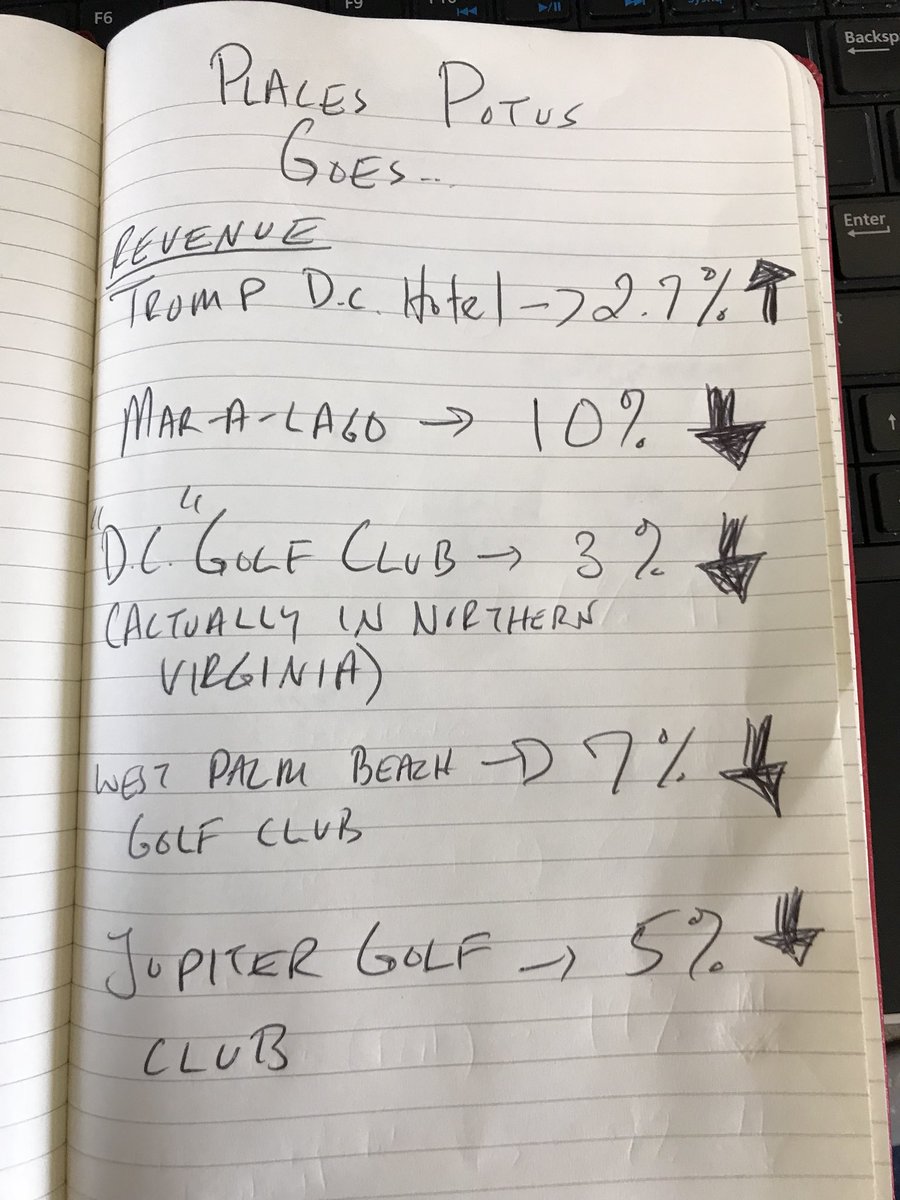 F6
F9
Backsp
Enter
PLACES POTUS
GOES...
REVENUE
TRUMP D.C. Hotel -> 2.7% ↑
MAR-A-LAGO → 10% ↓
"D.C." GOLF CLUB → 3% ↓
(ACTUALLY IN NORTHERN
VIRGINIA)
WEST PALM BEACH → 7% ↓
GOLF CLUB
JUPITER GOLF → 5% ↓
CLUB